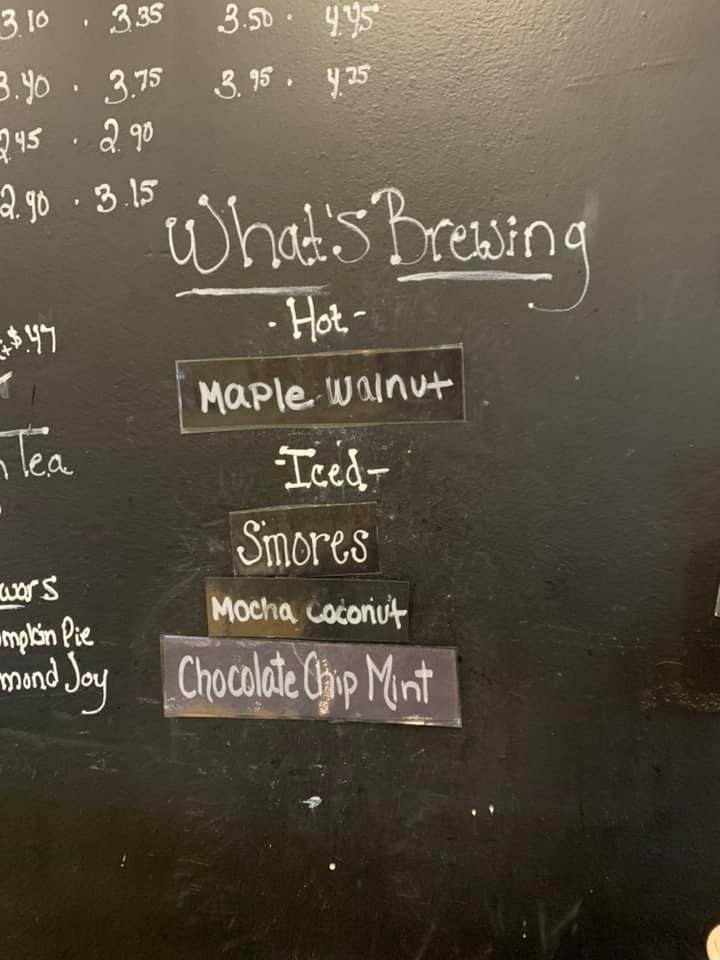 3.10 . 3.35 3.50 . 4.45
3.40 . 3.75 3.95 . 4.25
2.45 . 2.90
2.90 . 3.15
What's Brewing
- Hot -
Maple Walnut
$.47
-Iced-
Tea
S'mores
Mocha Coconut
Chocolate Chip Mint
Pie
Joy